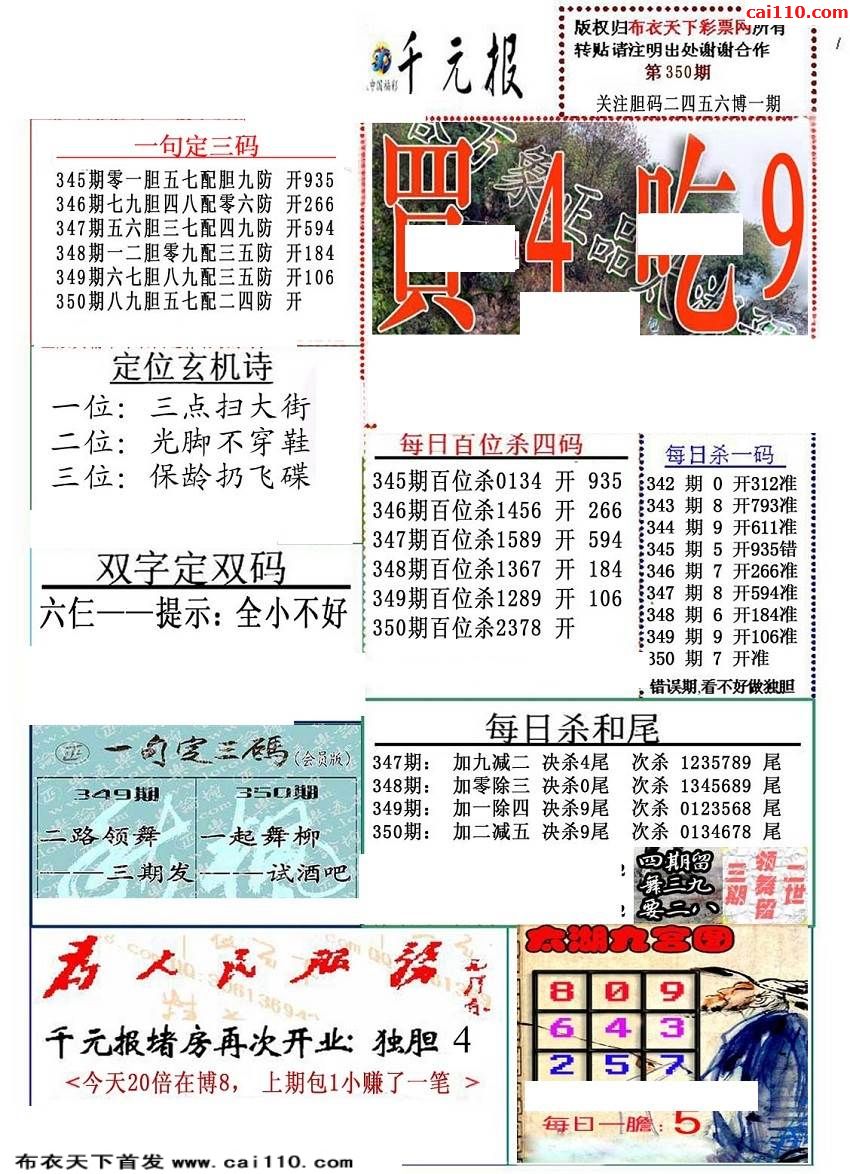 cai110.com
千元报
中国福彩
版权归布衣天下彩票网所有
转贴请注明出处谢谢合作
第350期
关注胆码二四五六博一期
一句定三码
345期零一胆五七配胆九防 开935
346期七九胆四八配零六防 开266
347期五六胆三七配四九防 开594
348期一二胆零九配三五防 开184
349期六七胆八九配三五防 开106
350期八九胆五七配二四防 开
買4吃9
定位玄机诗
一位：三点扫大街
二位：光脚不穿鞋
三位：保龄扔飞碟
每日百位杀四码
345期百位杀0134 开 935
346期百位杀1456 开 266
347期百位杀1589 开 594
348期百位杀1367 开 184
349期百位杀1289 开 106
350期百位杀2378 开
每日杀一码
342 期 0 开312准
343 期 8 开793准
344 期 9 开611准
345 期 5 开935错
346 期 7 开266准
347 期 8 开594准
348 期 6 开184准
349 期 9 开106准
350 期 7 开准
错误期,看不好做独胆
双字定双码
六仨——提示：全小不好
一句定三碼(会员版)
349期
二路领舞
——三期发
350期
一起舞柳
——试酒吧
每日杀和尾
347期： 加九减二 决杀4尾 次杀 1235789 尾
348期： 加零除三 决杀0尾 次杀 1345689 尾
349期： 加一除四 决杀9尾 次杀 0123568 尾
350期： 加二减五 决杀9尾 次杀 0134678 尾
四期留
舞三九
要二八
二世
领舞留
三期
为人民服务
千元报堵房再次开业：独胆 4
<今天20倍在博8， 上期包1小赚了一笔 >
太湖九宫图
8 0 9
6 4 3
2 5 7
每日一膽：5
布衣天下首发 www.cai110.com